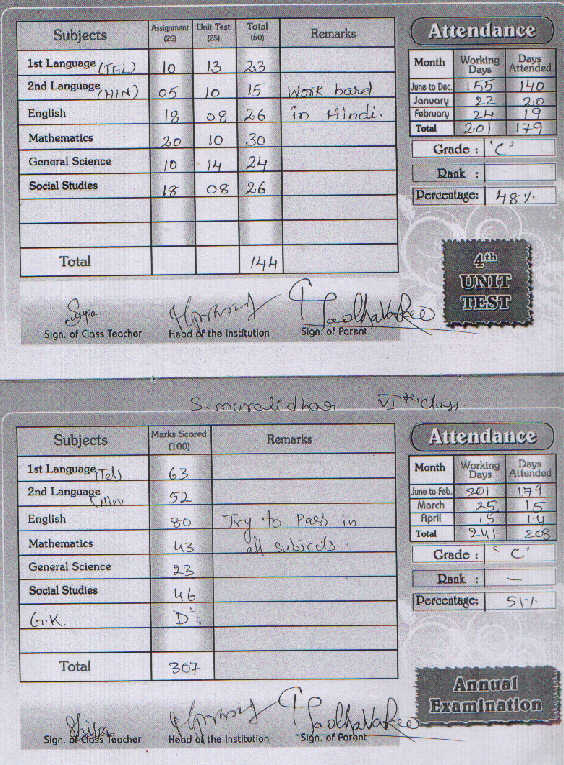 Subjects Assignment (25) Unit Test (25) Total (50) Remarks
1st Language (TEL) 10 13 23
2nd Language (HIN) 05 10 15 Work hard
English 18 08 26 in Hindi.
Mathematics 20 10 30
General Science 10 14 24
Social Studies 18 08 26
Total 144
Sign. of Class Teacher Head of the Institution Sign. of Parent
Attendance
Month Working Days Days Attended
June to Dec. 155 140
January 22 20
February 24 19
Total 201 179
Grade : 'C'
Rank :
Percentage: 48%
4th
UNIT
TEST
S. muralidhar VIth class
Subjects Marks Scored (100) Remarks
1st Language (Tel) 63
2nd Language 52
English 80 Try to Pass in
Mathematics 43 all subjects.
General Science 23
Social Studies 46
G.K. D
Total 307
Sign. of Class Teacher Head of the Institution Sign. of Parent
Attendance
Month Working Days Days Attended
June to Feb. 201 179
March 25 15
April 15 14
Total 241 208
Grade : "C"
Rank : —
Percentage: 51%
Annual
Examination